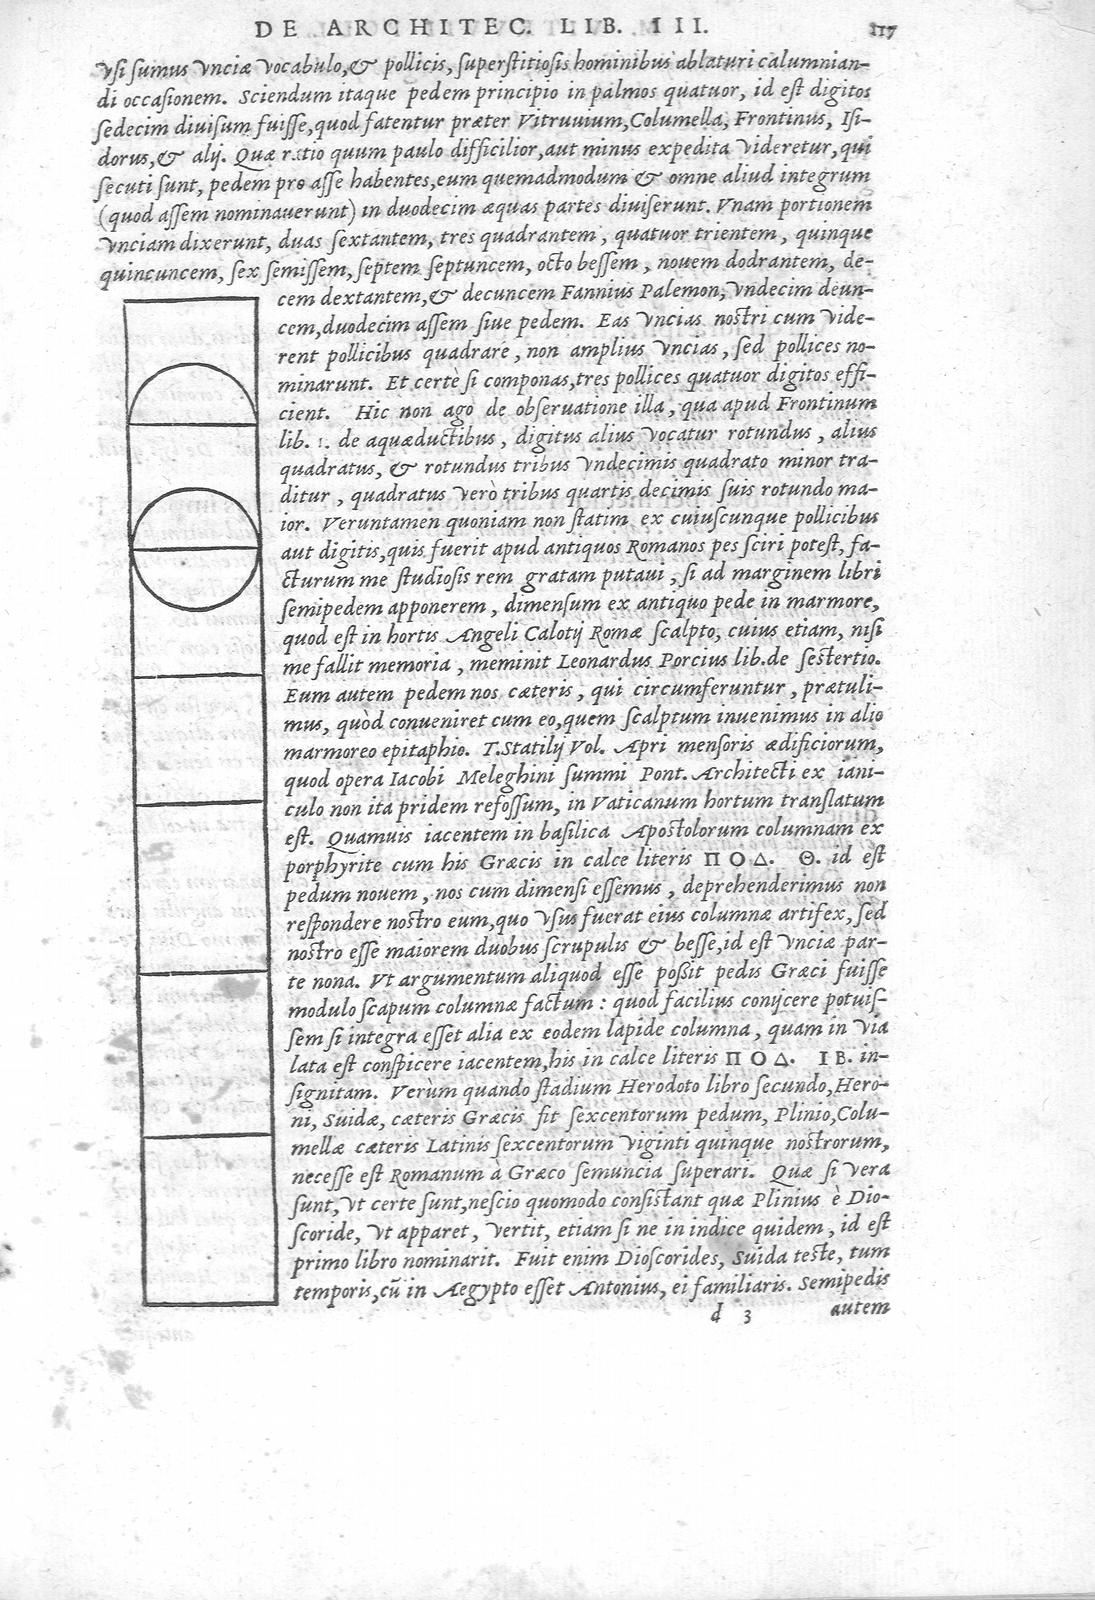 DE ARCHITEC. LIB. III. 117
vſi ſumus vnciæ vocabulo,& pollicis, ſuperſtitioſis hominibus ablaturi calumnian-
di occaſionem. Sciendum itaque pedem principio in palmos quatuor, id eſt digitos
ſedecim diuiſum fuiſſe,quod fatentur præter Vitruuium,Columella, Frontinus, Iſi-
dorus,& alij. Quæ ratio quum paulo difficilior,aut minus expedita videretur,qui
ſecuti ſunt, pedem pro aſſe habentes,eum quemadmodum & omne aliud integrum
(quod aſſem nominauerunt) in duodecim æquas partes diuiſerunt. Vnam portionem
vnciam dixerunt, duas ſextantem, tres quadrantem, quatuor trientem, quinque
quincuncem, ſex ſemiſſem, ſeptem ſeptuncem, octo beſſem, nouem dodrantem, de-
cem dextantem,& decuncem Fannius Palemon, vndecim deun-
cem,duodecim aſſem ſiue pedem. Eas vncias noſtri cum vide-
rent pollicibus quadrare, non amplius vncias, ſed pollices no-
minarunt. Et certè ſi componas,tres pollices quatuor digitos effi-
cient. Hic non ago de obſeruatione illa, qua apud Frontinum
lib. 1. de aquæductibus, digitus alius vocatur rotundus, alius
quadratus, & rotundus tribus vndecimis quadrato minor tra-
ditur, quadratus verò tribus quartis decimis ſuis rotundo ma-
ior. Veruntamen quoniam non ſtatim ex cuiuſcunque pollicibus
aut digitis,quis fuerit apud antiquos Romanos pes ſciri poteſt, fa-
cturum me ſtudioſis rem gratam putaui, ſi ad marginem libri
ſemipedem apponerem, dimenſum ex antiquo pede in marmore,
quod eſt in hortis Angeli Colotij Romæ ſcalpto, cuius etiam, niſi
me fallit memoria, meminit Leonardus Porcius lib.de ſeſtertio.
Eum autem pedem nos cæteris, qui circumferuntur, prætuli-
mus, quòd conueniret cum eo,quem ſcalptum inuenimus in alio
marmoreo epitaphio. T.Statilij Vol. Apri menſoris ædificiorum,
quod opera Iacobi Meleghini ſummi Pont. Architecti ex iani-
culo non ita pridem refoſſum, in Vaticanum hortum tranſlatum
eſt. Quamuis iacentem in baſilica Apoſtolorum columnam ex
porphyrite cum his Græcis in calce literis ΠΟΔ. Θ. id eſt
pedum nouem, nos cum dimenſi eſſemus, deprehenderimus non
reſpondere noſtro eum,quo vſus fuerat eius columnæ artifex, ſed
noſtro eſſe maiorem duobus ſcrupulis & beſſe,id eſt vnciæ par-
te nona. Vt argumentum aliquod eſſe poßit pedis Græci fuiſſe
modulo ſcapum columnæ factum: quod facilius conijcere potuiſ-
ſem ſi integra eſſet alia ex eodem lapide columna, quam in via
lata eſt conſpicere iacentem,his in calce literis ΠΟΔ. ΙΒ. in-
ſignitam. Verùm quando ſtadium Herodoto libro ſecundo,Hero-
ni, Suidæ, cæteris Græcis fit ſexcentorum pedum, Plinio,Colu-
mellæ cæteris Latinis ſexcentorum viginti quinque noſtrorum,
neceſſe eſt Romanum à Græco ſemuncia ſuperari. Quæ ſi vera
ſunt, vt certe ſunt,neſcio quomodo conſiſtant quæ Plinius è Dio-
ſcoride, vt apparet, vertit, etiam ſi ne in indice quidem, id eſt
primo libro nominarit. Fuit enim Dioſcorides, Suida teſte, tum
temporis,cū in Aegypto eſſet Antonius, ei familiaris. Semipedis
d 3 autem